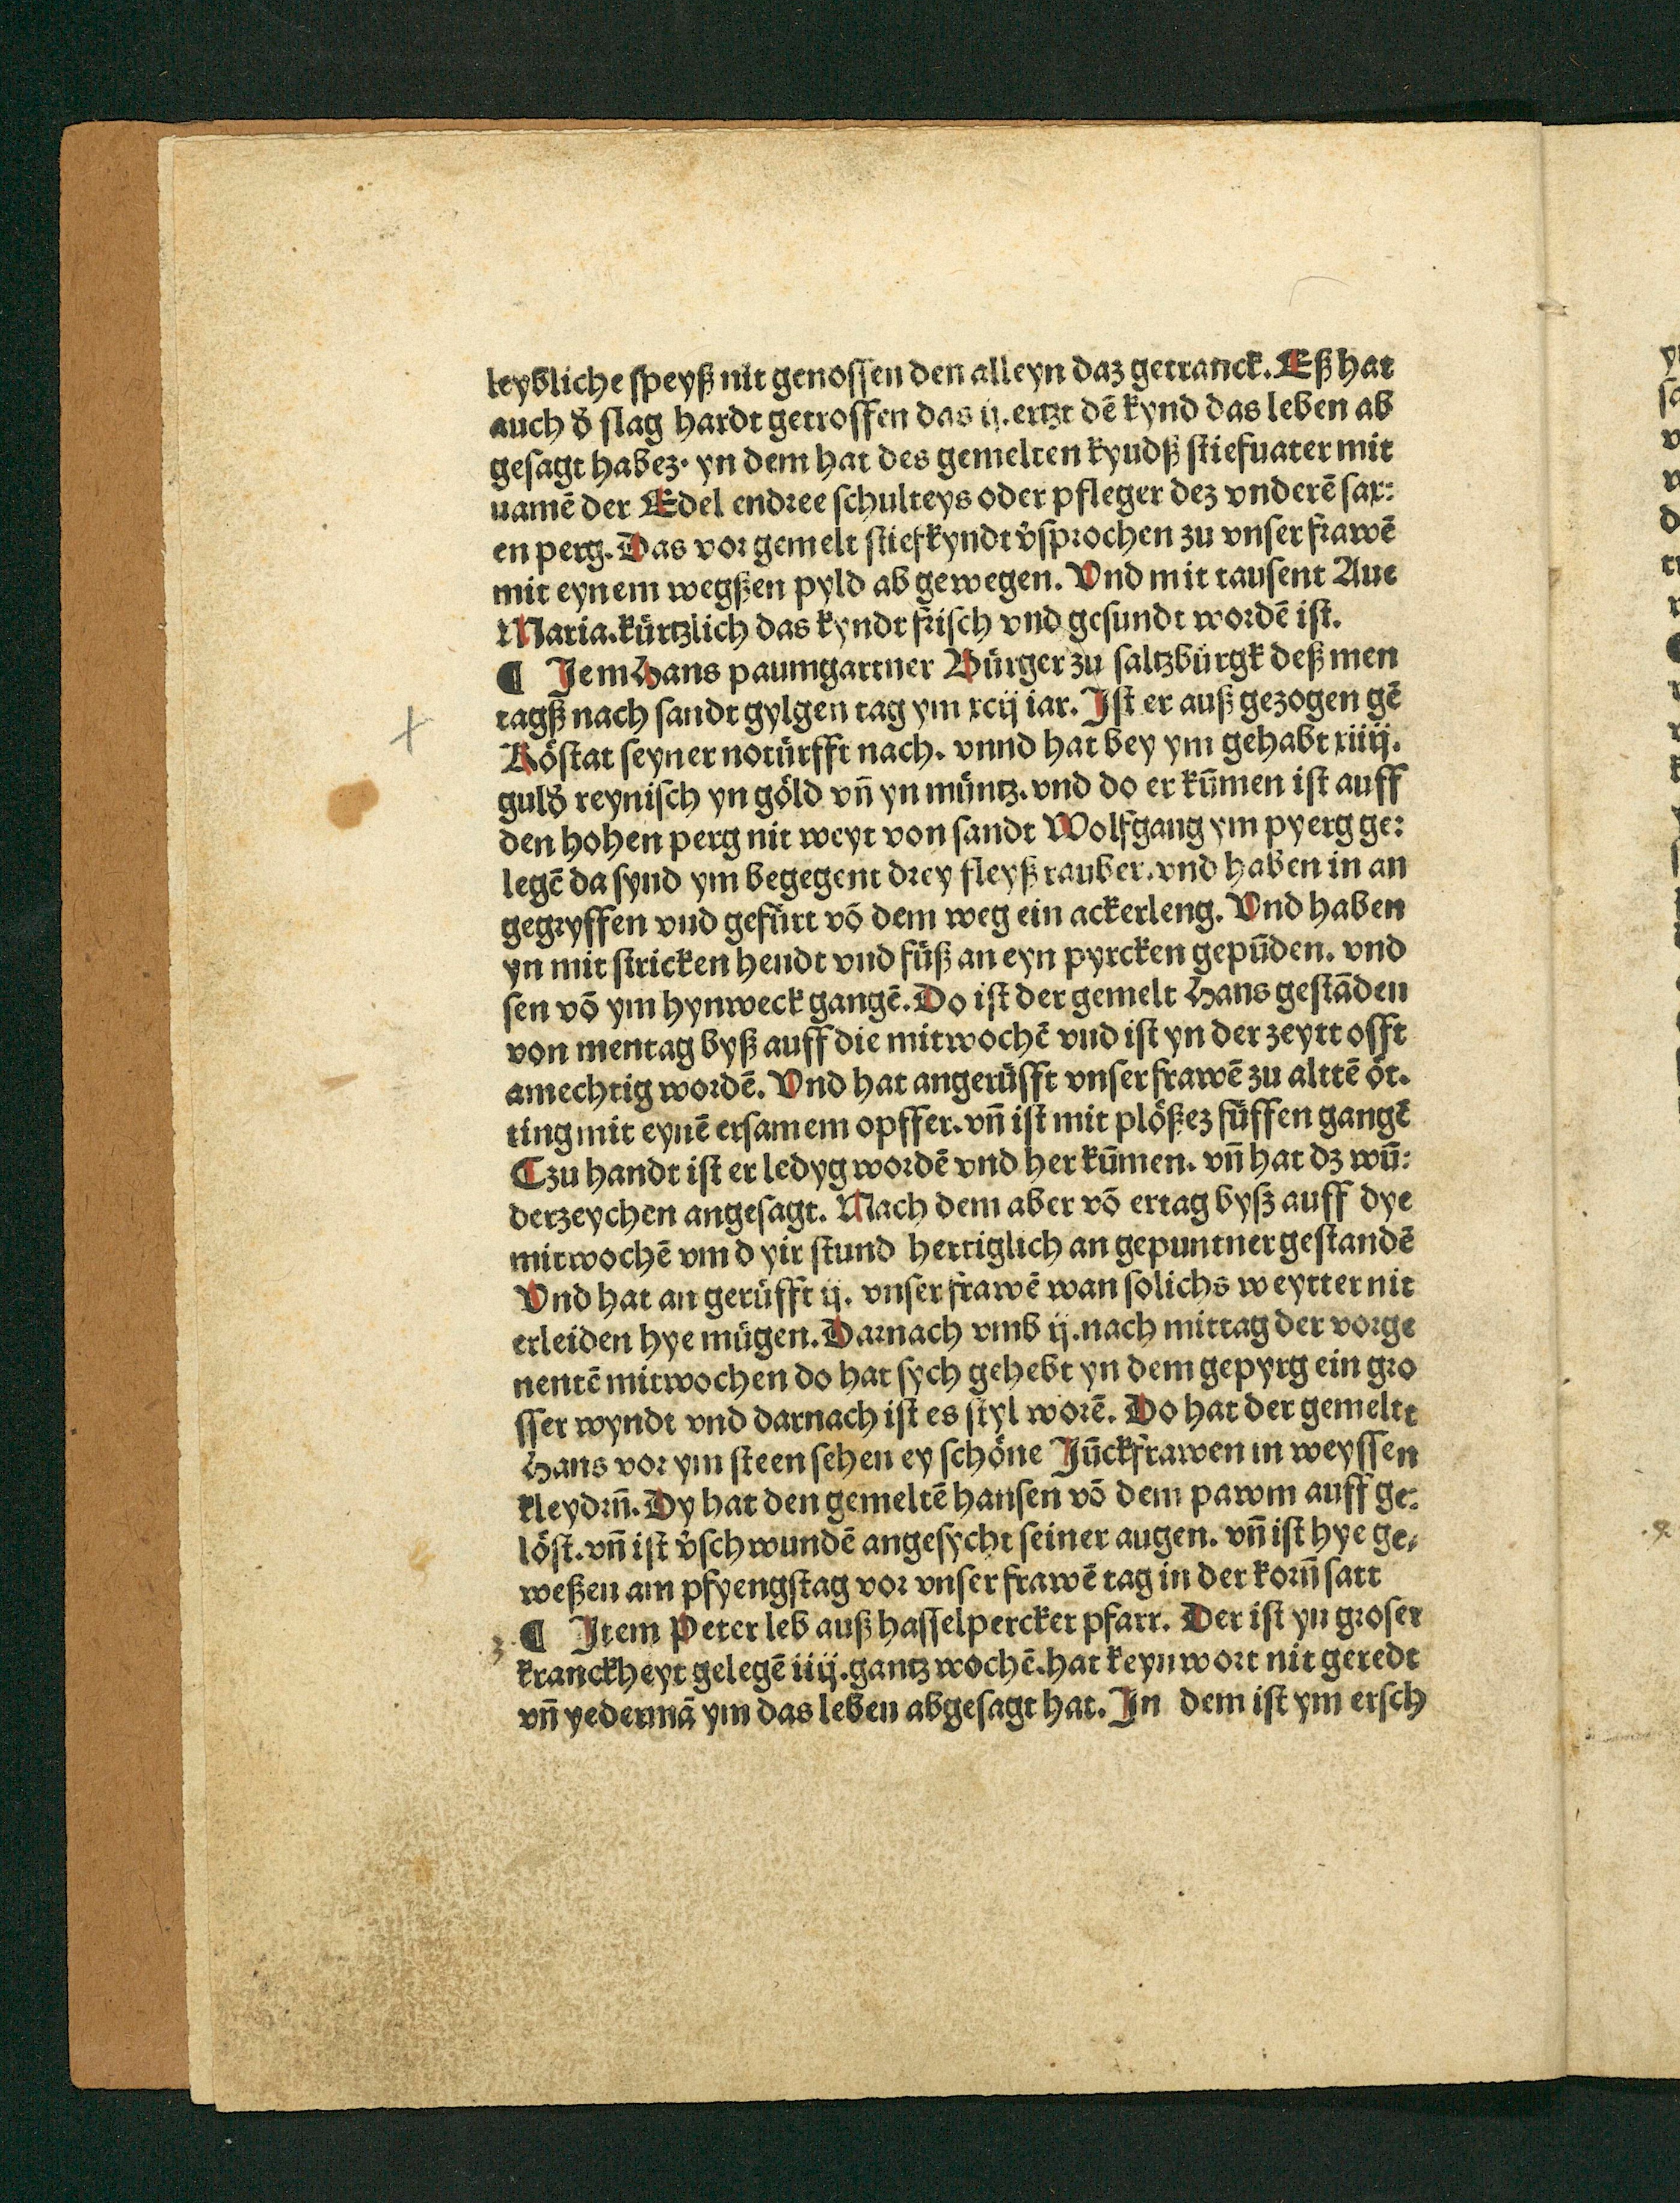 leybliche speyß nit genossen den alleyn daz getranck. Eß hat
auch đ slag hardt getroffen das ij. ertzt dē kynd das leben ab
gesagt habez· yn dem hat des gemelten kyudß stiefuater mit
uamē der Edel endree schulteys oder pfleger dez vnderē sax:
en perg. Das vor gemelt stiefkyndt v̓sprochen zu vnser frawē
mit eynem wegßen pyld ab gewegen. Vnd mit tausent Aue
Maria. kürtzlich das kyndt frisch vnd gesundt wordē ist.
¶ Jem Hans paumgartner Bürger zu saltzbürgk deß men
tagß nach sandt gylgen tag ym xcij iar. Jst er auß gezogen gē
Röstat seyner notürfft nach. vnnd hat bey ym gehabt xiiij.
guld̓ reynisch yn göld vn̄ yn müntz. vnd do er kūmen ist auff
den hohen perg nit weyt von sandt Wolfgang ym pyerg ge:
legē da synd ym begegent drey fleyß rauber. vnd haben in an
gegryffen vud gefürt vō dem weg ein ackerleng. Vnd haben
yn mit stricken hendt vnd füß an eyn pyrcken gepūden. vnd
sen vō ym hynweck gangē. Do ist der gemelt Hans gestāden
von mentag byß auff die mitwochē vud ist yn der zeytt offt
amechtig wordē. Vnd hat angerüfft vnser frawē zu alttē öt.
ting mit eynē ersamem opffer. vn̄ ist mit plößez füffen gangē
Czu handt ist er ledyg wordē vnd her kūmen. vn̄ hat dz wū:
derzeychen angesagt. Nach dem aber vō ertag byß auff dye
mitwochē vm d yir stund hertiglich an gepuntner gestandē
Vnd hat an gerüfft ij. vnser frawē wan solichs weytter nit
erleiden hye mügen. Darnach vmb ij. nach mittag der vorge
nentē mitwochen do hat sych gehebt yn dem gepyrg ein gro
sser wyndt vnd darnach ist es styl worē. Do hat der gemeltt
Hans vor ym steen sehen ey schöne Jūckfrawen in weyssen
kleydrn̄. Dy hat den gemeltē hansen vō dem pawm auff ge:
löst. vn̄ ist v̓schwundē angesycht seiner augen. vn̄ ist hye ge⸗
weßen am pfyengstag vor vnser frawē tag in der korn̄ satt
¶ Jtem Peter leb auß hasselpercker pfarr. Der ist yn groser
kranckheyt gelegē iiij. gantz wochē. hat keyn wort nit geredt
vn̄ yedermā ym das leben abgesagt hat. Jn dem ist ym ersch